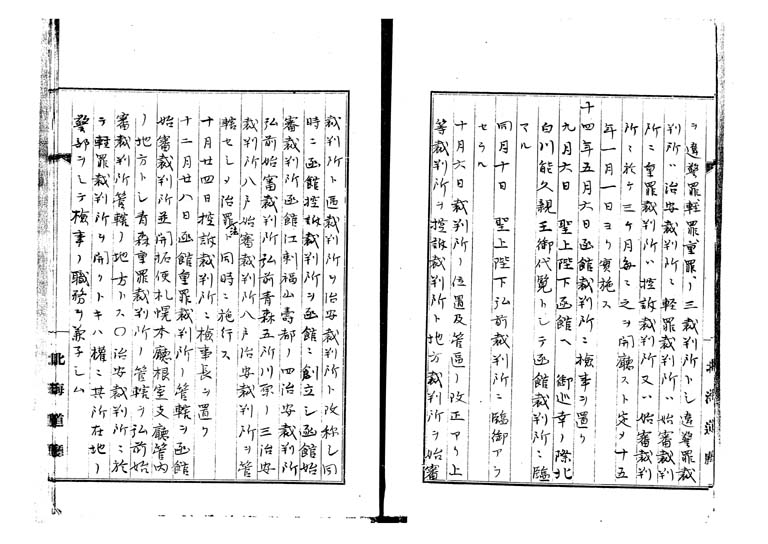 ヲ違警罪軽罪重罪ノ三裁判所トシ違警罪裁
判所ハ治安裁判所ニ軽罪裁判所ハ始審裁判
所ニ重罪裁判所ハ控訴裁判所又ハ始審裁判
所ニ於テ三ケ月毎ニ之ヲ開廳スト定メ十五
年一月一日ヨリ實施ス
十四年五月六日函館裁判所ニ検事ヲ置ク
九月六日 聖上陛下函館ヘ 御巡幸ノ際北
白川能久親王御代覧トシテ函館裁判所ニ臨
マル
同月十日 聖上陛下弘前裁判所ニ臨御アラ
セラル
十月六日裁判所ノ位置及管區ノ改正アリ上
等裁判所ヲ控訴裁判所ト地方裁判所ヲ始審
裁判所ト區裁判所ヲ治安裁判所ト改称シ同
時ニ函館控訴裁判所ヲ函館ニ創立シ函館始
審裁判所函館江刺福山壽都ノ四治安裁判所
弘前始審裁判所弘前青森五所川原ノ三治安
裁判所八戸始審裁判所八戸治安裁判所ヲ管
轄セシメ治罪法ト同時ニ施行ス
十月廿四日控訴裁判所ニ検事長ヲ置ク
十二月廿八日函館重罪裁判所ノ管轄ヲ函館
始審裁判所並開拓使札幌本廳根室支廳管内
ノ地方トシ青森重罪裁判所ノ管轄ヲ弘前始
審裁判所管轄ノ地方トス〇治安裁判所ニ於
テ軽罪裁判所ヲ開クトキハ權ニ其所在地ノ
警部ヲシテ検事ノ職務ヲ兼子シム
北海道廳